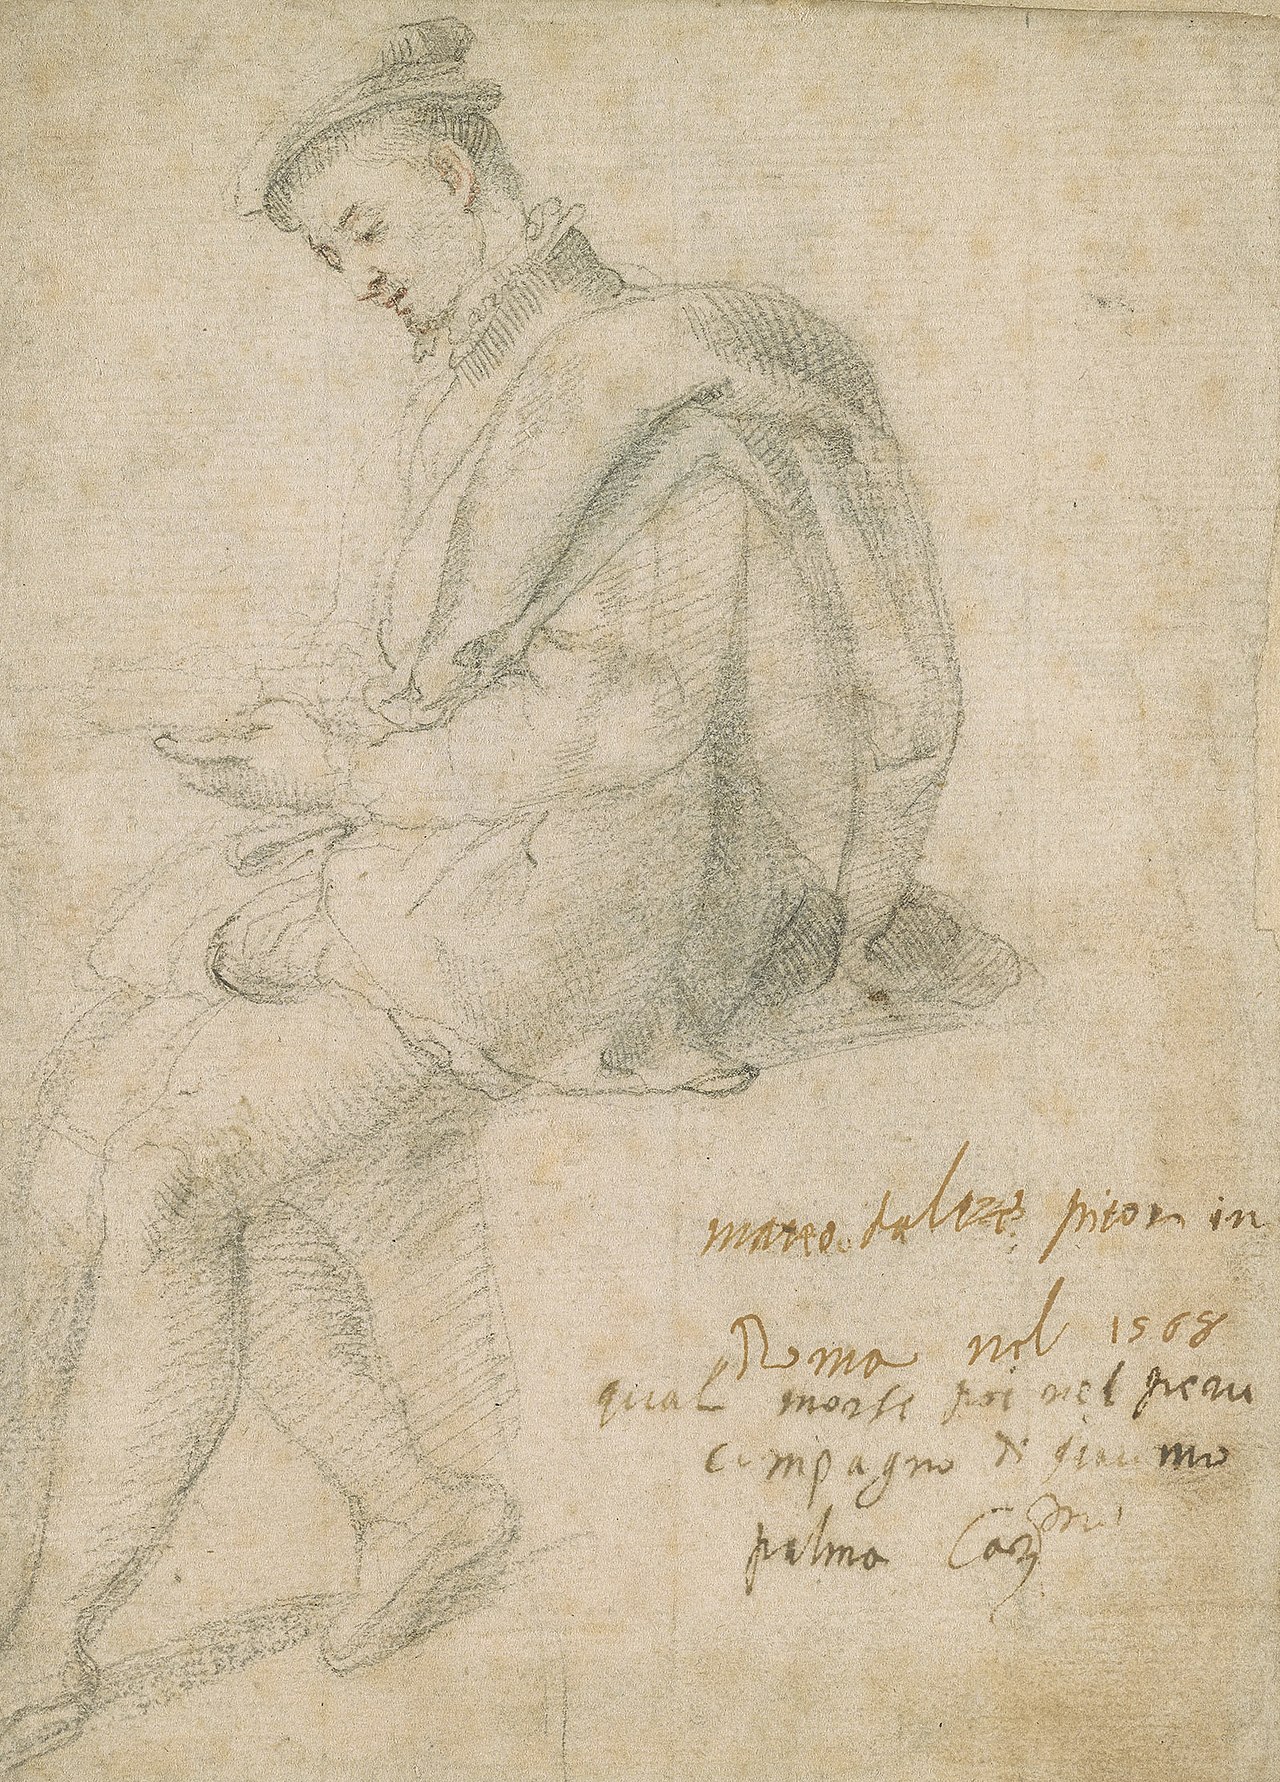 mateo da leze pitor in
Roma nel 1568
qual morse poi nel peru
compagno di giacomo
palma